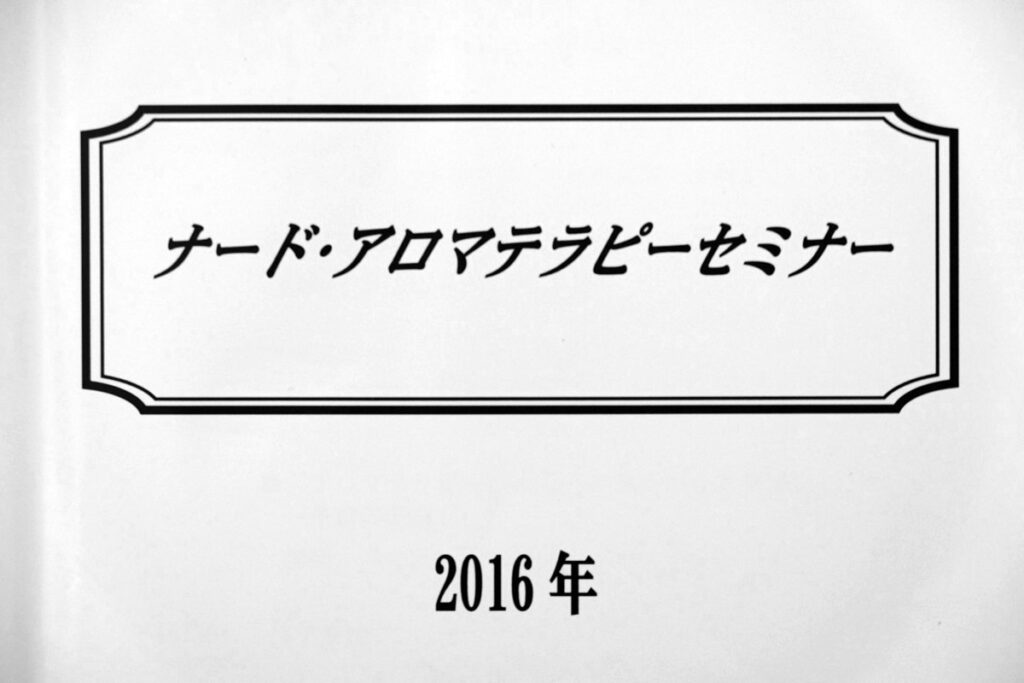 ナード・アロマテラピーセミナー
2016年